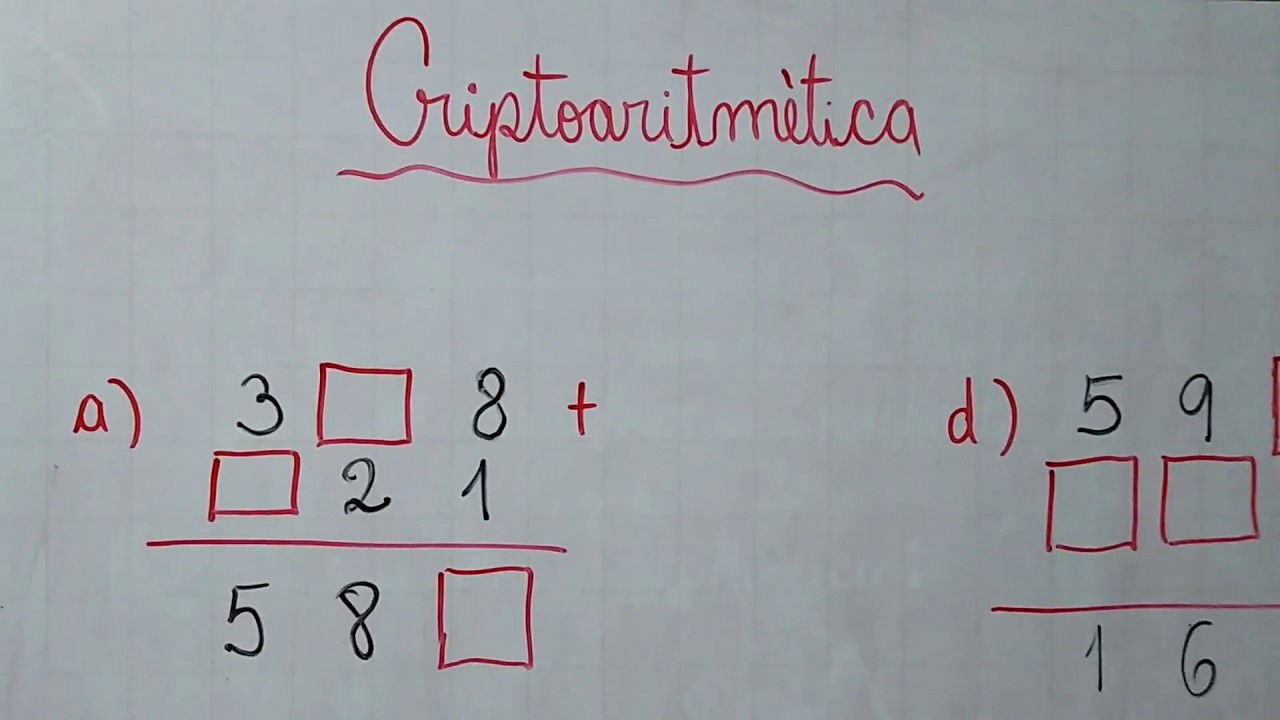 Criptoaritmètica
a) 3 □ 8 +
□ 2 1
5 8 □
d) 5 9
□ □
1 6